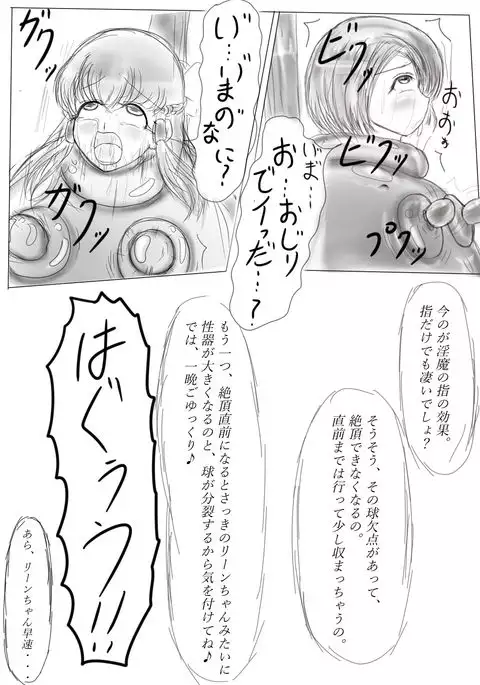 ビクッ
おおぉ
ビクッ
プクッ
いま…
お…おじり
でイっだ…？
い゛…
い゛まの゛
なに？
ガクッ
ガクッ
今のが淫魔の指の効果。
指だけでも凄いでしょ？
そうそう、その球欠点があって、
絶頂できなくなるの。
直前までは行って少し収まっちゃうの。
もう一つ、絶頂直前になるとさっきのリーンちゃんみたいに
性器が大きくなるのと、球が分裂するから気を付けてね♪
では、一晩ごゆっくり♪
はぐぅぅう!!
あら、リーンちゃん早速・・・